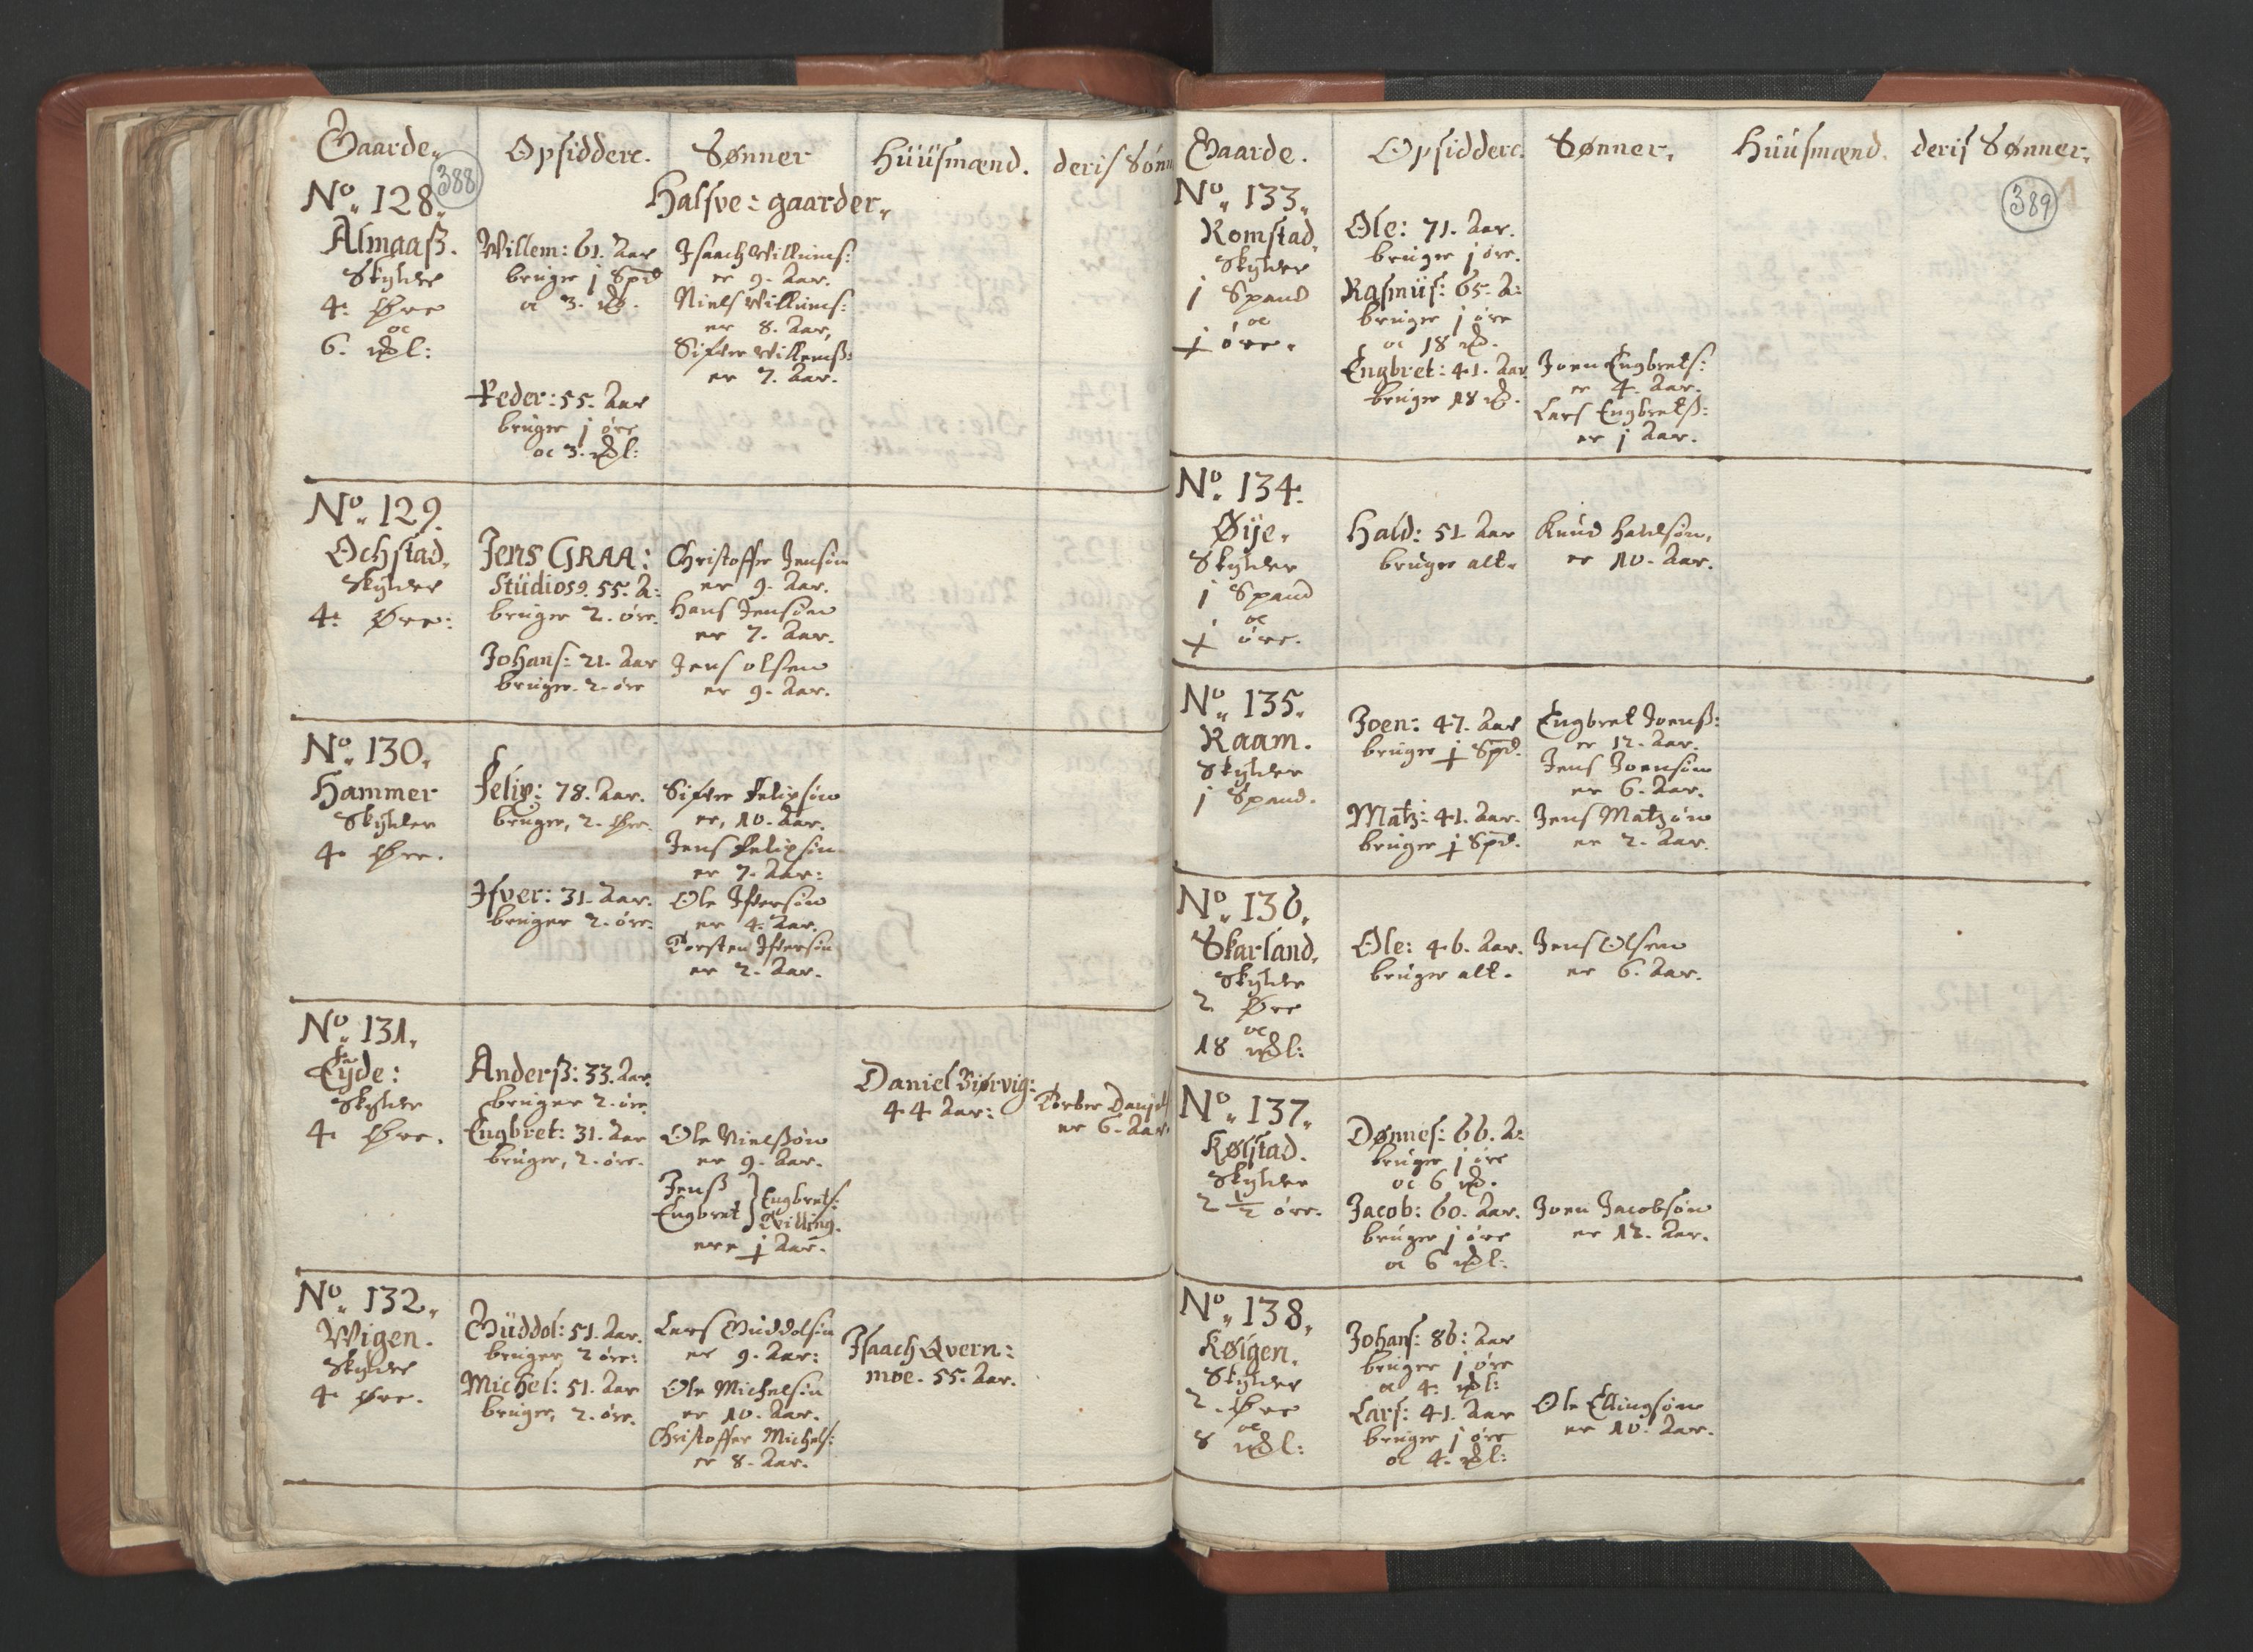 Gaarde. Opsiddere. Sønner Huusmænd. deris Sønn
388
No. 128. Halfve = gaarder.
Almaaß.
Skylder
4. Øre
oc
6. mkl:
Willem: 61. Aar
bruger j Spd
oc 3. mk.
Isaach Willums:
er 9. Aar.
Niels Willums:
er 8. Aar,
Sifver Willemß:
er 7. Aar.
Peder: 55. Aar
bruger j øre
oc 3. mkl:
No. 129.
Ochstad.
Skylder
4. Øre:
Jens GRAA:
Studios9. 55. A:
bruger 2. øre.
Christoffer Jensøn
er 9. Aar.
Hans Jensøn
er 7. Aar.
Johans: 21. Aar
bruger. 2. øre
Jens olsen
er 9. Aar.
No. 130.
Hammer
Skylder
4. Øre.
Felix: 78. Aar.
bruger, 2. Øre.
Sifver Felixsøn
er, 10. Aar.
Jens Felixsøn
er 7. Aar:
Ifver: 31. Aar.
bruger 2. øre.
Ole Ifversøn
er 4. Aar.
Torsten Ifversøn
er 2. Aar.
No. 131.
Eyde:
Skylder
4. Øre.
Anderß: 33. Aar.
bruger 2. øre
Daniel Biørvig:
44 Aar:
Daniels
er 6. Aar.
Engbret: 31. Aar
bruger, 2. øre.
Ole Nielsøn
er 9. Aar.
Jenß
Engbret } Engbrets:
Tvilling.
ere j Aar.
No. 132.
Wigen.
Skylder
4. Øre.
Guddol: 51. Aar.
bruger 2 øre:
Lars Guddolsøn
er 9. Aar:
Isaach Qvern:
moe. 55. Aar.
Michel: 51. Aar
bruger, 2. øre.
Ole Michelsøn
er 10. Aar.
Christoffer Michels:
er 8. Aar.
Gaarde. Opsiddere. Sønner. Huusmænd. deris Sønner.
389
No. 133.
Romstad.
Skylder
j Spand
oc
j øre.
Ole: 71. Aar.
bruger j øre.
Rasmus: 65. A:
bruger j øre
oc 18 mk.
Engbret: 41. Aar
bruger 18 mk.
Joen Engbrets:
er 4. Aar.
Lars Engbretß:
er j Aar.
No. 134.
Øije.
Skylder
j Spand
oc
j øre.
Hald: 51 Aar
bruger alt.
Knud Haldsøn,
er 10. Aar.
No. 135.
Raam.
Skylder
j Spand.
Joen: 47. Aar
bruger j Spd.
Engbret Joenß:
er 12. Aar.
Jens Joensøn
er 6. Aar.
Matz: 41. Aar.
bruger j Spd.
Jens Matzøn
er 2. Aar.
No. 136.
Skarland.
Skylder
2 Øre
oc
18 mkl:
Ole: 46. Aar.
bruger alt.
Jens Olsen
er 6. Aar.
No. 137.
Kølstad.
Skylder
2 1/2 øre.
Dønnes: 66. A:
bruger j øre
oc 6 mk.
Jacob: 60. Aar.
bruger j øre
oc 6 mkl:
Joen Jacobsøn
er 12. Aar.
No. 138.
Kølgen.
Skylder
2. Øre
oc
8 mkl:
Johans: 86: Aar
bruger j øre
oc 4. mkl:
Lars: 41. Aar
bruger j øre
oc 4. mkl:
Ole Ellingsøn
er 10. Aar.